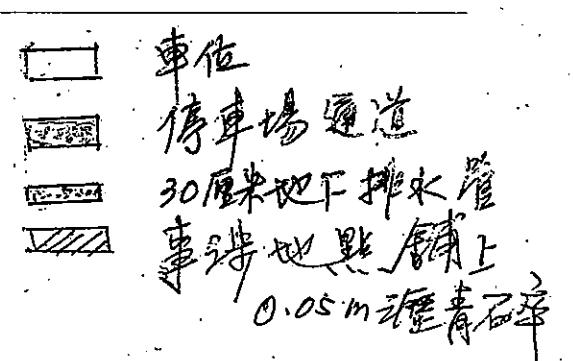 車位
停車場通道
30厘米地下排水管
事涉地點舖上
0.05m瀝青石碎